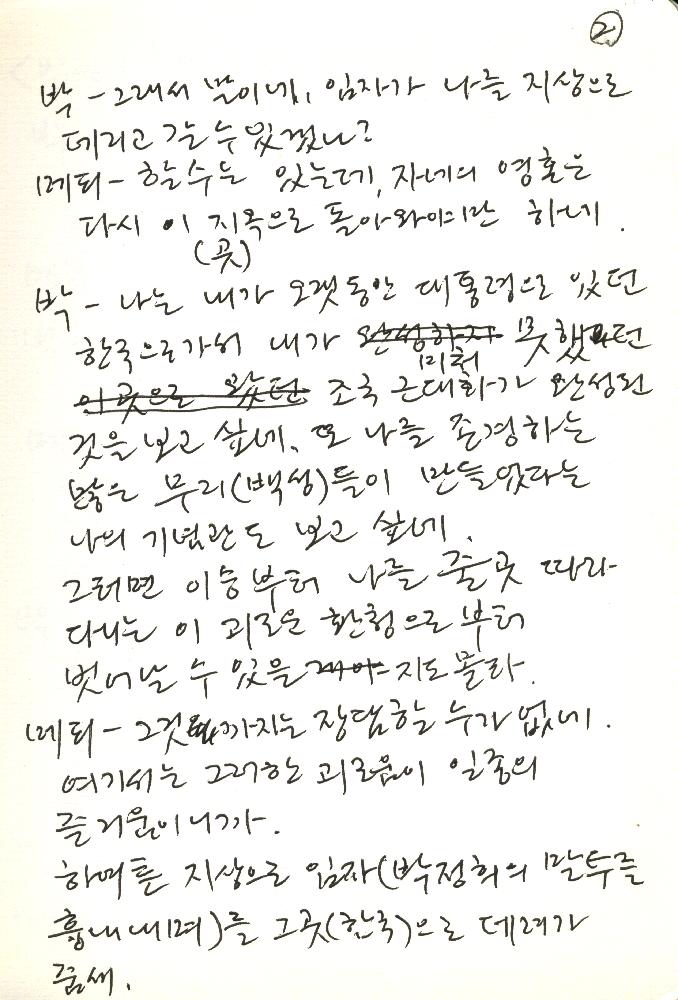 ②
박 - 그래서 말이네, 임자가 나를 지상으로
데리고 갈 수 있겠나?
메피 - 할수는 있는데, 자네의 영혼은
다시 이 지옥으로 돌아와야만 하네.
(곳)
박 - 나는 내가 오랫동안 대통령으로 있던
한국으로가서 내가 완성하지 못했던
미처
이곳으로 왔던 조국 근대화가 완성된
것을 보고 싶네. 또 나를 존경하는
많은 무리(백성)들이 만들었다는
나의 기념관도 보고 싶네.
그러면 이승부터 나를 줄곳 따라
다니는 이 괴로운 환청으로부터
벗어날 수 있을 지도 몰라.
메피 - 그것까지는 장담할 수가 없네.
여기서는 그러한 괴로움이 일종의
즐거움이니까.
하여튼 지상으로 임자(박정희의 말투를
흉내내며)를 그곳(한국)으로 데려가
줌세.